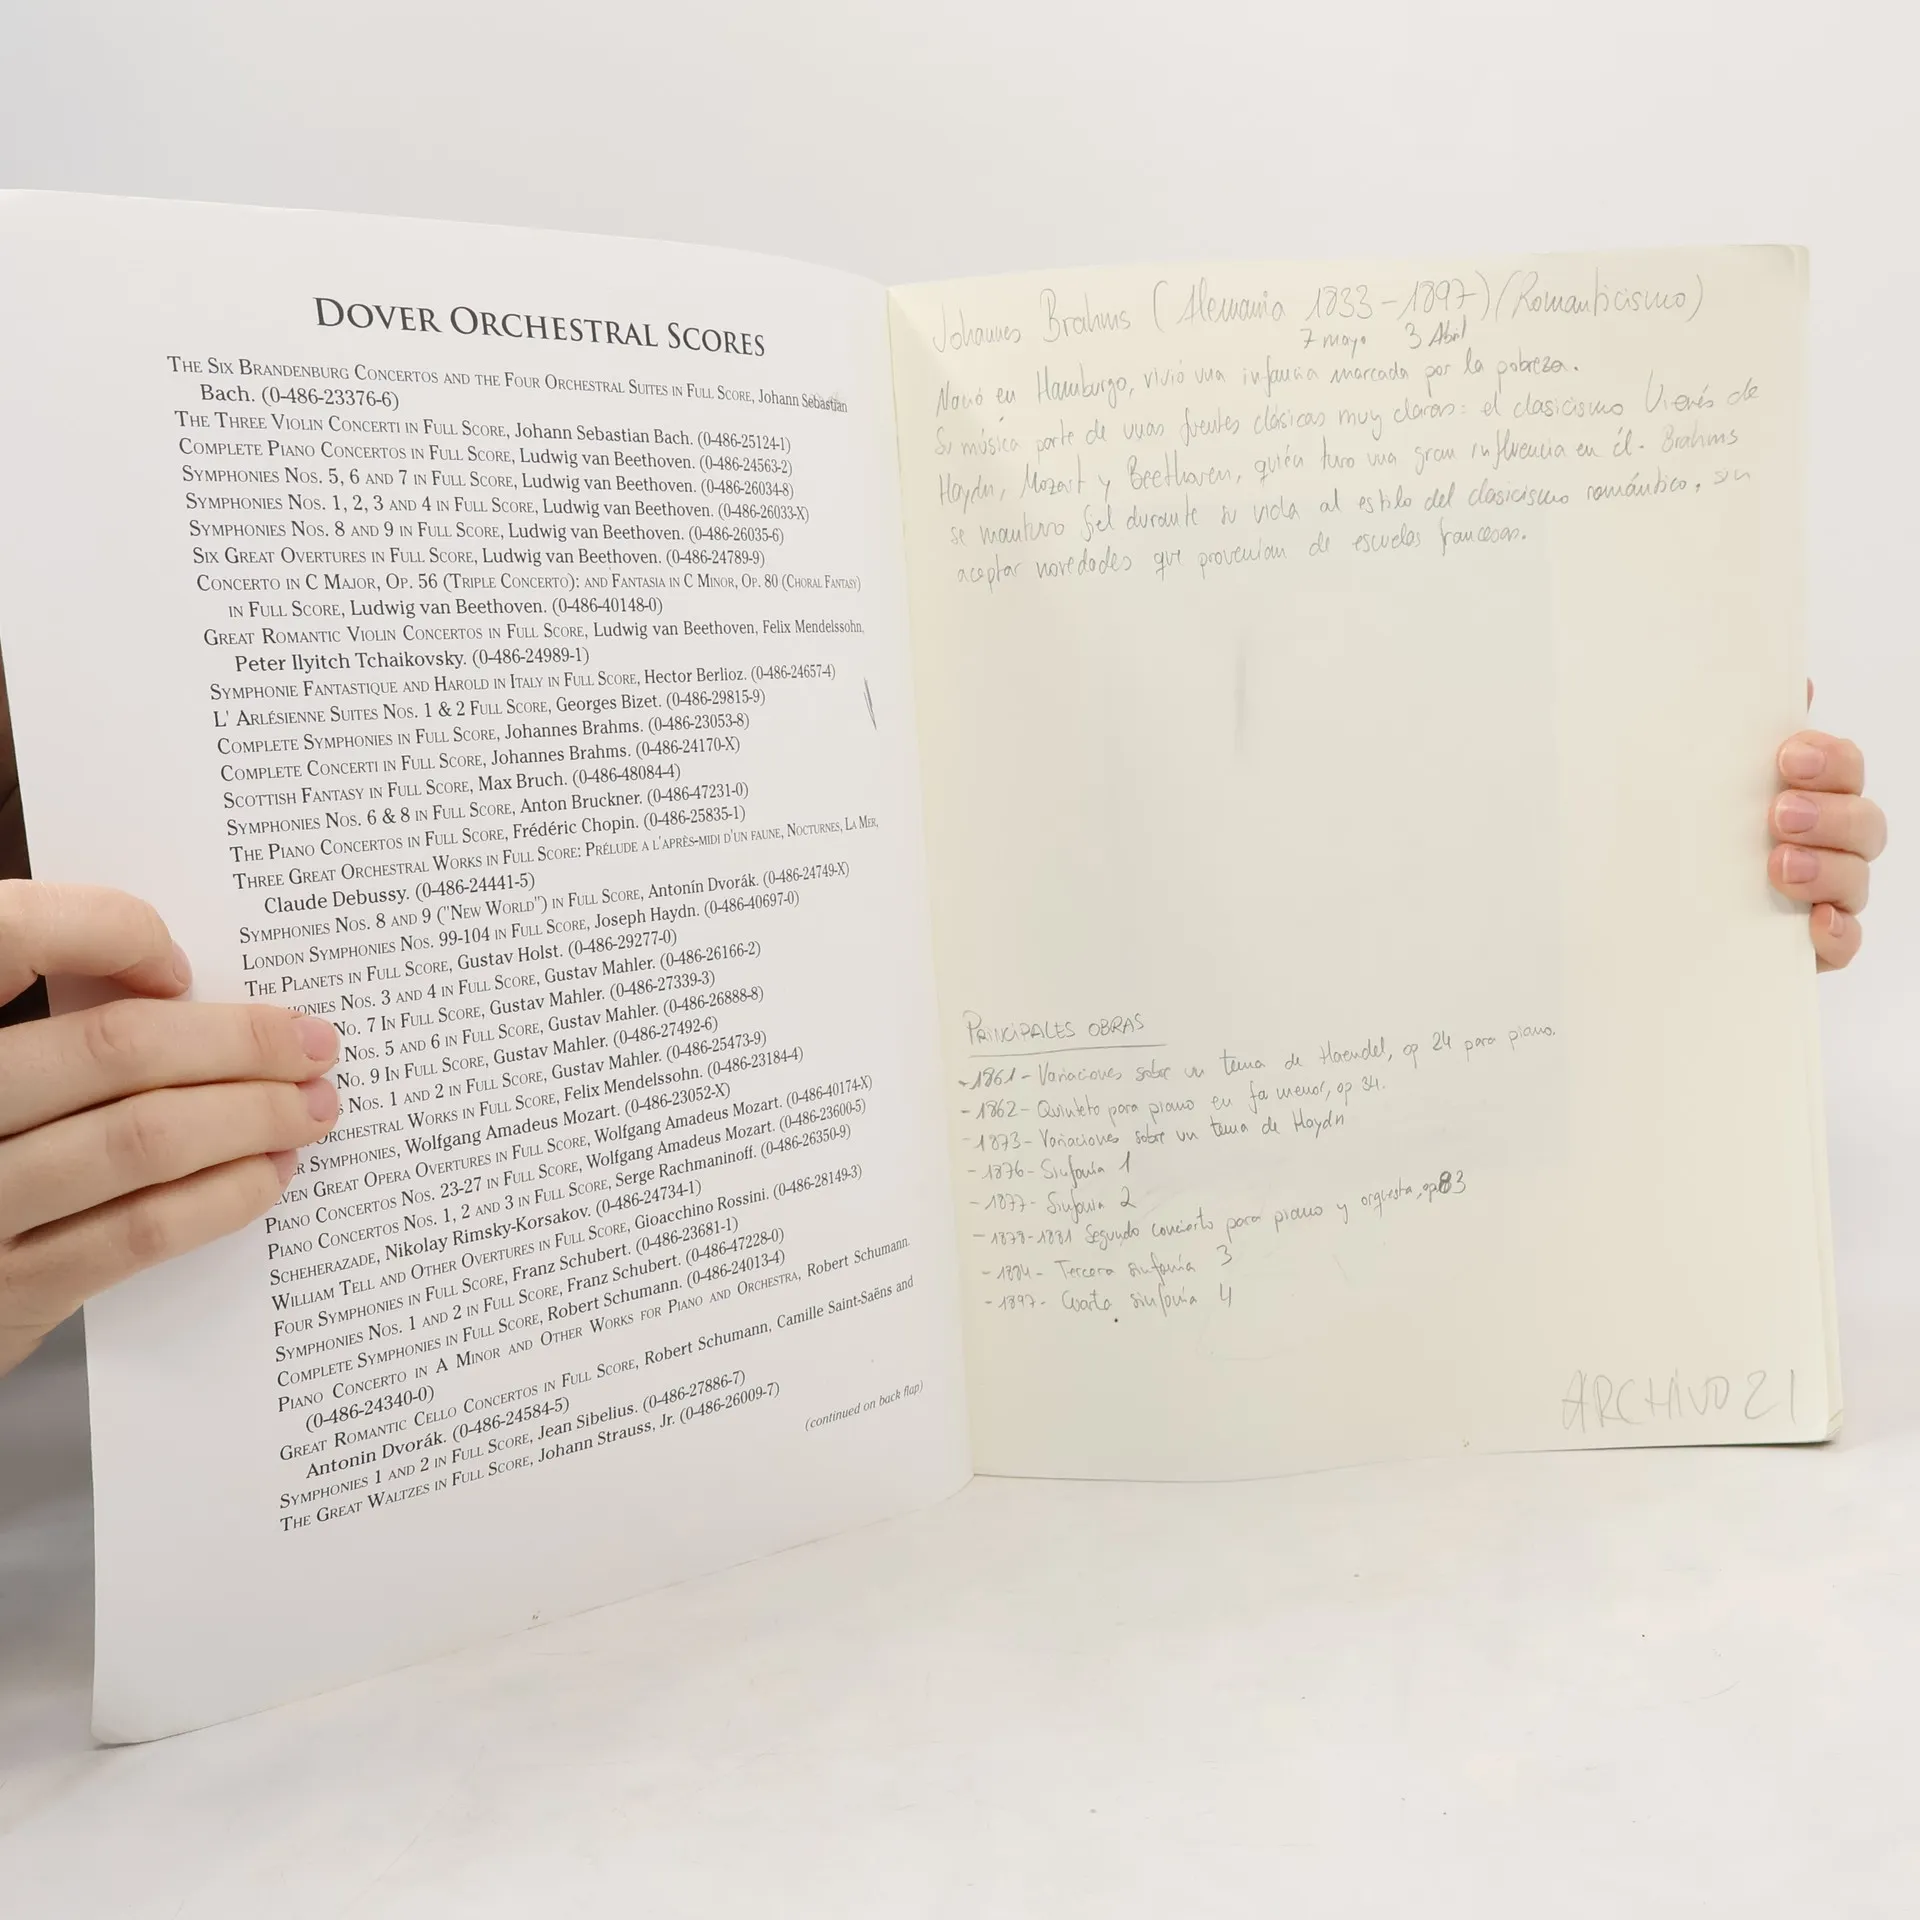 DOVER ORCHESTRAL SCORES
THE SIX BRANDENBURG CONCERTOS AND THE FOUR ORCHESTRAL SUITES IN FULL SCORE, Johann Sebastian
Bach. (0-486-23376-6)
THE THREE VIOLIN CONCERTI IN FULL SCORE, Johann Sebastian Bach. (0-486-25124-1)
COMPLETE PIANO CONCERTOS IN FULL SCORE, Ludwig van Beethoven. (0-486-24563-2)
SYMPHONIES NOS. 5, 6 AND 7 IN FULL SCORE, Ludwig van Beethoven. (0-486-26034-8)
SYMPHONIES NOS. 1, 2, 3 AND 4 IN FULL SCORE, Ludwig van Beethoven. (0-486-26033-X)
SYMPHONIES NOS. 8 AND 9 IN FULL SCORE, Ludwig van Beethoven. (0-486-26035-6)
SIX GREAT OVERTURES IN FULL SCORE, Ludwig van Beethoven. (0-486-24789-9)
CONCERTO IN C MAJOR, OP. 56 (TRIPLE CONCERTO): AND FANTASIA IN C MINOR, OP. 80 (CHORAL FANTASY)
IN FULL SCORE, Ludwig van Beethoven. (0-486-40148-0)
GREAT ROMANTIC VIOLIN CONCERTOS IN FULL SCORE, Ludwig van Beethoven, Felix Mendelssohn,
Peter Ilyitch Tchaikovsky. (0-486-24989-1)
SYMPHONIE FANTASTIQUE AND HAROLD IN ITALY IN FULL SCORE, Hector Berlioz. (0-486-24657-4)
L' ARLÉSIENNE SUITES NOS. 1 & 2 FULL SCORE, Georges Bizet. (0-486-29815-9)
COMPLETE SYMPHONIES IN FULL SCORE, Johannes Brahms. (0-486-23053-8)
COMPLETE CONCERTI IN FULL SCORE, Johannes Brahms. (0-486-24170-X)
SCOTTISH FANTASY IN FULL SCORE, Max Bruch. (0-486-48084-4)
SYMPHONIES NOS. 6 & 8 IN FULL SCORE, Anton Bruckner. (0-486-47231-0)
THE PIANO CONCERTOS IN FULL SCORE, Frédéric Chopin. (0-486-25835-1)
THREE GREAT ORCHESTRAL WORKS IN FULL SCORE: PRÉLUDE A L'APRÈS-MIDI D'UN FAUNE, NOCTURNES, LA MER,
Claude Debussy. (0-486-24441-5)
SYMPHONIES NOS. 8 AND 9 ("NEW WORLD") IN FULL SCORE, Antonín Dvorák. (0-486-24749-X)
LONDON SYMPHONIES NOS. 99-104 IN FULL SCORE, Joseph Haydn. (0-486-40697-0)
THE PLANETS IN FULL SCORE, Gustav Holst. (0-486-29277-0)
ONIES NOS. 3 AND 4 IN FULL SCORE, Gustav Mahler. (0-486-26166-2)
NO. 7 IN FULL SCORE, Gustav Mahler. (0-486-27339-3)
NOS. 5 AND 6 IN FULL SCORE, Gustav Mahler. (0-486-26888-8)
NO. 9 IN FULL SCORE, Gustav Mahler. (0-486-27492-6)
NOS. 1 AND 2 IN FULL SCORE, Gustav Mahler. (0-486-25473-9)
ORCHESTRAL WORKS IN FULL SCORE, Felix Mendelssohn. (0-486-23184-4)
R SYMPHONIES, Wolfgang Amadeus Mozart. (0-486-23052-X)
VEN GREAT OPERA OVERTURES IN FULL SCORE, Wolfgang Amadeus Mozart. (0-486-40174-X)
PIANO CONCERTOS NOS. 23-27 IN FULL SCORE, Wolfgang Amadeus Mozart. (0-486-23600-5)
PIANO CONCERTOS NOS. 1, 2 AND 3 IN FULL SCORE, Serge Rachmaninoff. (0-486-26350-9)
SCHEHERAZADE, Nikolay Rimsky-Korsakov. (0-486-24734-1)
WILLIAM TELL AND OTHER OVERTURES IN FULL SCORE, Gioacchino Rossini. (0-486-28149-3)
FOUR SYMPHONIES IN FULL SCORE, Franz Schubert. (0-486-23681-1)
SYMPHONIES NOS. 1 AND 2 IN FULL SCORE, Franz Schubert. (0-486-47228-0)
COMPLETE SYMPHONIES IN FULL SCORE, Robert Schumann. (0-486-24013-4)
PIANO CONCERTO IN A MINOR AND OTHER WORKS FOR PIANO AND ORCHESTRA, Robert Schumann.
(0-486-24340-0)
GREAT ROMANTIC CELLO CONCERTOS IN FULL SCORE, Robert Schumann, Camille Saint-Saëns and
Antonin Dvorák. (0-486-24584-5)
SYMPHONIES 1 AND 2 IN FULL SCORE, Jean Sibelius. (0-486-27886-7)
THE GREAT WALTZES IN FULL SCORE, Johann Strauss, Jr. (0-486-26009-7)
(continued on back flap)
Johannes Brahms (Alemania 1833-1897) (Romanticismo)
7 mayo 3 Abril
Nació en Hamburgo, vivió una infancia marcada por la pobreza.
Su música parte de unas fuentes clásicas muy claras: el clasicismo Vienés de
Haydn, Mozart y Beethoven, quién tuvo una gran influencia en él. Brahms
se mantuvo fiel durante su vida al estilo del clasicismo romántico, sin
aceptar novedades que provenian de escuelas francesas.
PRINCIPALES OBRAS
-1861- Variaciones sobre un tema de Haendel, op 24 para piano.
- 1862- Quinteto para piano en fa menor, op 34.
- 1873- Variaciones sobre un tema de Haydn
- 1876- Sinfonía 1
- 1877- Sinfonia 2
- 1878-1881 Segundo concierto para piano y orquesta, op 83
- 1884- Tercera sinfonía 3
- 1897- Cuarta sinfonía 4
ARCHIVO 21